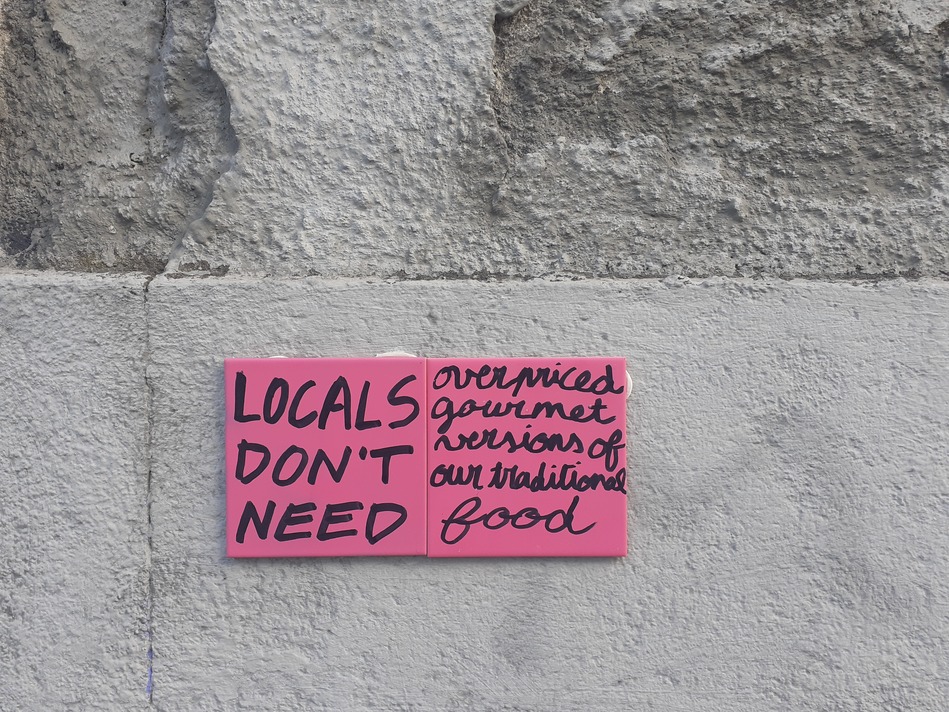 LOCALS
DON'T
NEED
overpriced
gourmet
versions of
our traditional
food